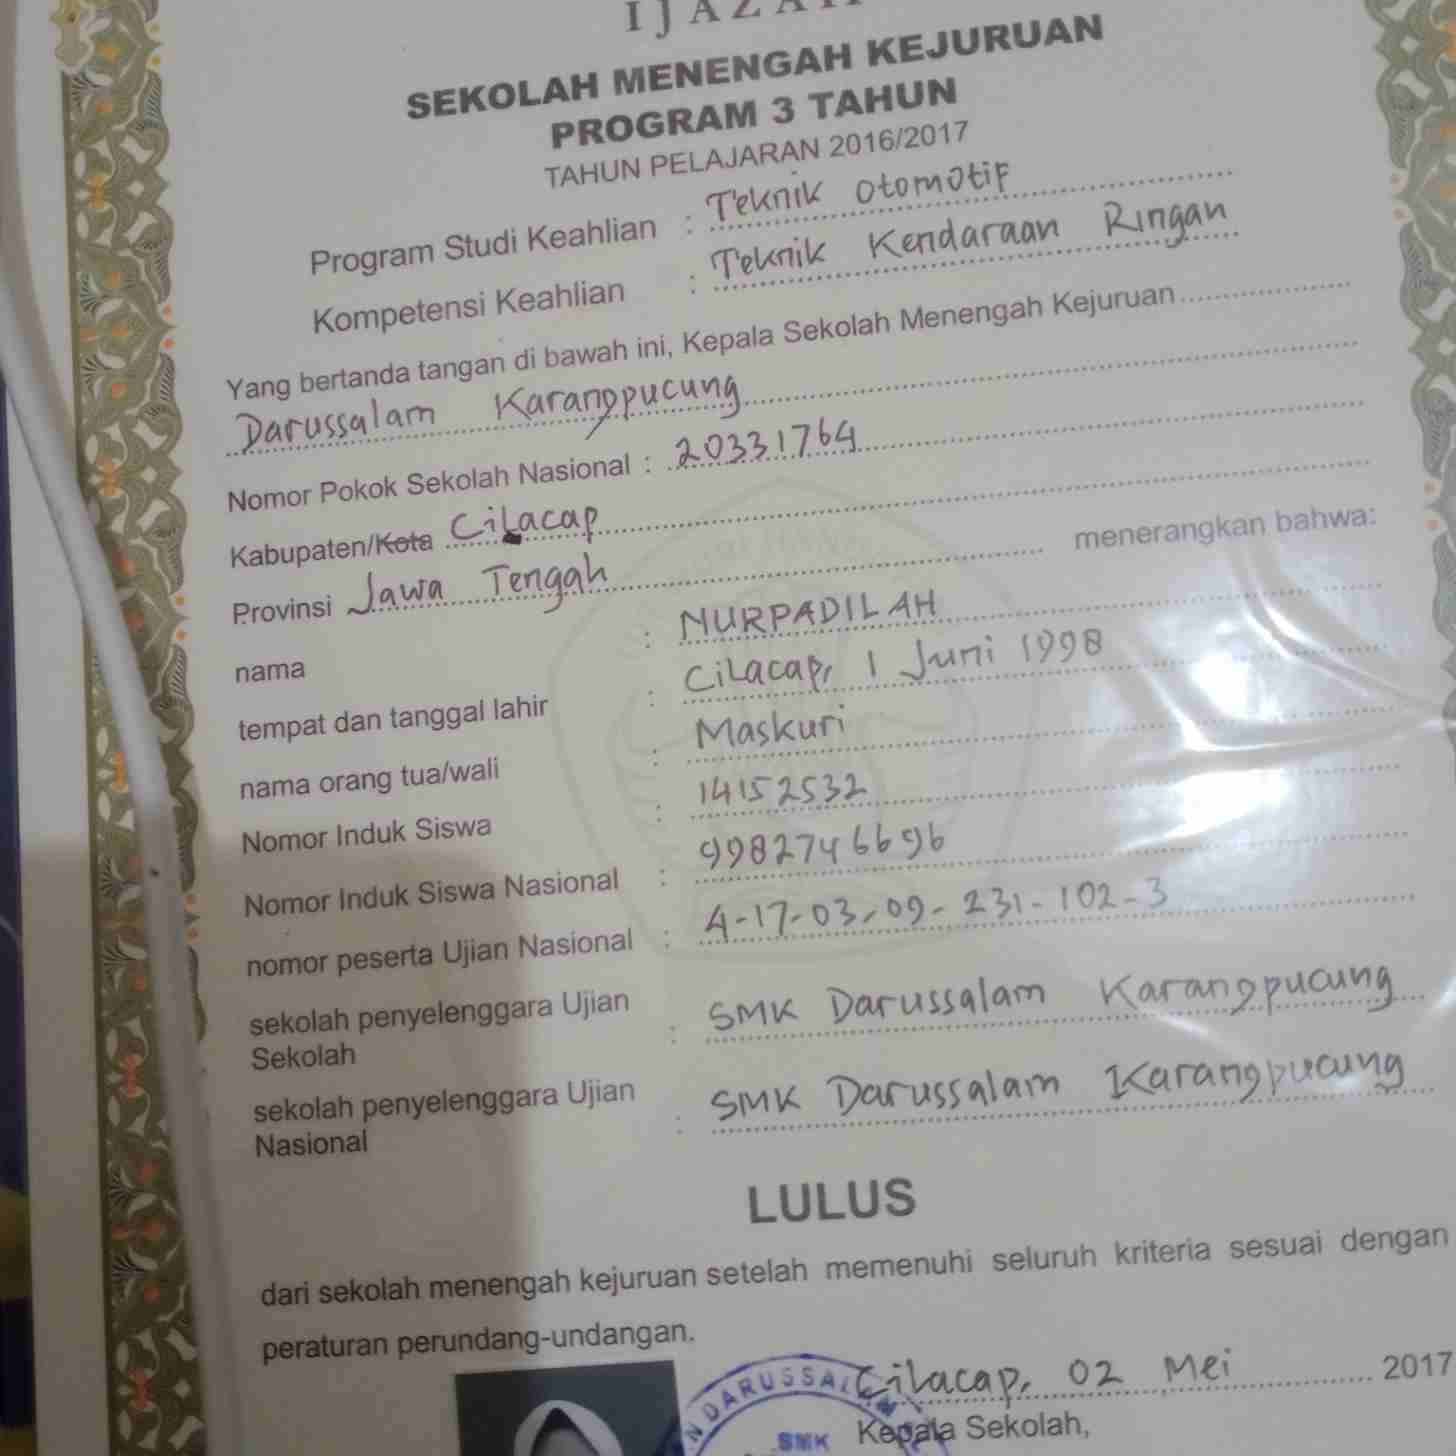 IJAZAH
SEKOLAH MENENGAH KEJURUAN
PROGRAM 3 TAHUN
TAHUN PELAJARAN 2016/2017
Program Studi Keahlian : Teknik Otomotif
Kompetensi Keahlian : Teknik Kendaraan Ringan
Yang bertanda tangan di bawah ini, Kepala Sekolah Menengah Kejuruan
Darussalam Karangpucung
Nomor Pokok Sekolah Nasional : 20331764
Kabupaten/Kota Cilacap
Provinsi Jawa Tengah menerangkan bahwa:
nama : NURPADILAH
tempat dan tanggal lahir : Cilacap, 1 Juni 1998
nama orang tua/wali : Maskuri
Nomor Induk Siswa : 14152532
Nomor Induk Siswa Nasional : 9982746696
nomor peserta Ujian Nasional : 4-17-03-09-231-102-3
sekolah penyelenggara Ujian
Sekolah : SMK Darussalam Karangpucung
sekolah penyelenggara Ujian
Nasional : SMK Darussalam Karangpucung
LULUS
dari sekolah menengah kejuruan setelah memenuhi seluruh kriteria sesuai dengan
peraturan perundang-undangan.
Cilacap, 02 Mei 2017
Kepala Sekolah,
DARUSSALAM
SMK